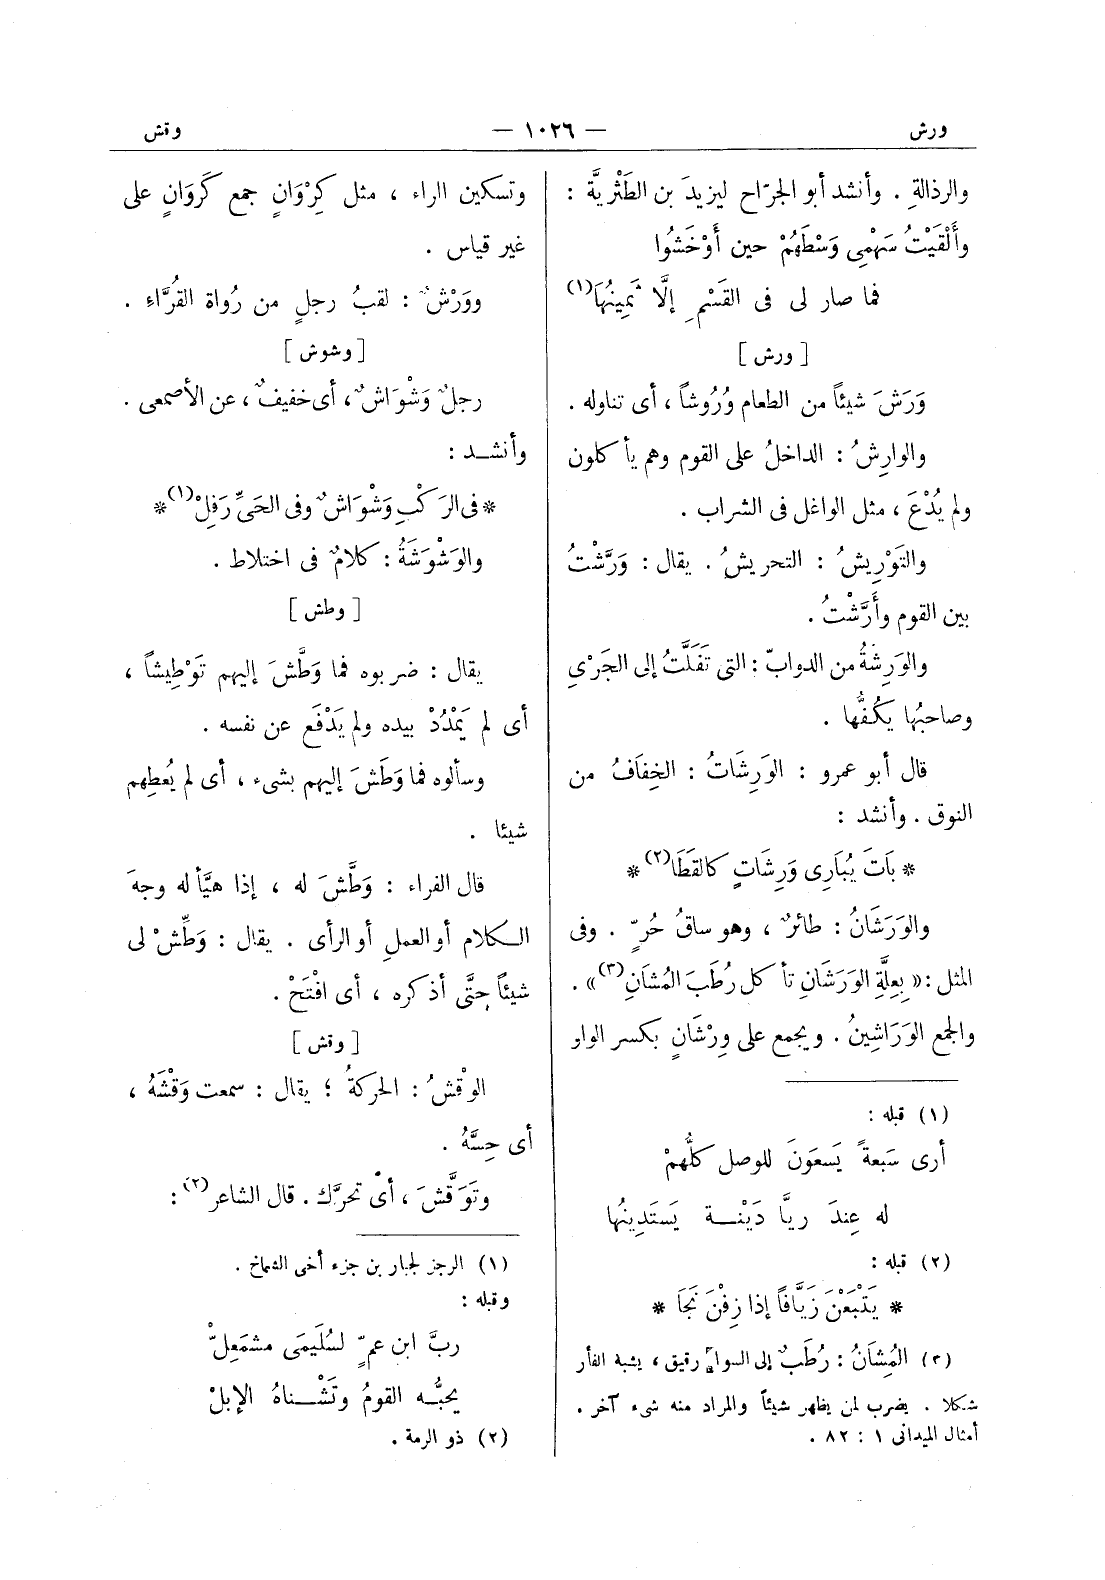 ورش
— ١٠٢٦ —
وقش
والرذالةِ . وأنشد أبو الجرّاح ليزيدَ بن الطَثْريَّة :
وأَلْقَيْتُ سَهْمِى وَسْطَهُمْ حين أَوْخَشُوا
فما صار لى فى القَسْمِ إلَّا ثَمِينُهَا (١)
[ ورش ]
وَرَشَ شيئاً من الطعام وُرُوشاً ، أى تناوله .
والوارِشُ : الداخلُ على القوم وهم يأكلون
ولم يُدْعَ ، مثل الواغل فى الشراب .
والتَوْرِيشُ : التحريشُ . يقال : وَرَّشْتُ
بين القوم وأَرَّشْتُ .
والوَرِشَةُ من الدوابّ : التى تَفَلَّتُ إلى الجَرْىِ
وصاحبُها يَكُفُّها .
قال أبو عمرو : الوَرِشَاتُ : الخِفَافُ من
النوق . وأنشد :
* بَاتَ يُبَارِى وَرِشَاتٍ كالقَطَا (٢) *
والوَرَشَانُ : طائرٌ ، وهو ساقُ حُرٍّ . وفى
المثل : « بِعِلَّةِ الوَرَشَانِ تأكل رُطَبَ المُشَانِ (٣) » .
والجمع الوَرَاشِينُ . ويجمع على وِرْشَانٍ بكسر الواو
(١) قبله :
أرى سَبعةً يَسعَونَ للوصل كلُّهمْ
له عِندَ ريَّا دَيْنـة يَستَدِينُها
(٢) قبله :
* يَتْبَعْنَ زَيَّافاً إذا زِفْنَ نَجَا *
(٣) المُشَانُ : رُطَبٌ إلى السواد رقيق ، يشبه الفأر
شكلا . يضرب لمن يظهر شيئاً والمراد منه شىء آخر .
أمثال الميدانى ١ : ٨٢ .
وتسكين الراء ، مثل كِرْوَانٍ جمع كَرَوَانٍ على
غير قياس .
ووَرْشٌ : لقبُ رجلٍ من رُواة القُرَّاءِ .
[ وشوش ]
رجلٌ وَشْوَاشٌ ، أى خفيفٌ ، عن الأصمعى .
وأنشـد :
* فى الرَكْبِ وَشْوَاشٌ وفى الحَىِّ رَفِلْ (١) *
والوَشْوَشَةُ : كلامٌ فى اختلاط .
[ وطش ]
يقال : ضربوه فما وَطَّشَ إليهم تَوْطِيشاً ،
أى لم يَمْدُدْ بيده ولم يَدْفَع عن نفسه .
وسألوه فما وَطَشَ إليهم بشىء ، أى لم يُعطِهم
شيئا .
قال الفراء : وَطَّشَ له ، إذا هيَّأ له وجهَ
الكلام أو العملِ أو الرأى . يقال : وَطِّشْ لى
شيئاً حتَّى أذكره ، أى افْتَحْ .
[ وقش ]
الوقْشُ : الحركةُ ؛ يقال : سمعت وَقْشَهُ ،
أى حِسَّهُ .
وتَوَقَّشَ ، أىْ تحرَّك . قال الشاعر (٢) :
(١) الرجز لجبار بن جزء أخى الشماخ .
وقبله :
ربَّ ابن عمٍّ لسُلَيمَى مشمَعِلّْ
يحبُّـه القومُ وتَشْـناهُ الإبلْ
(٢) ذو الرمة .